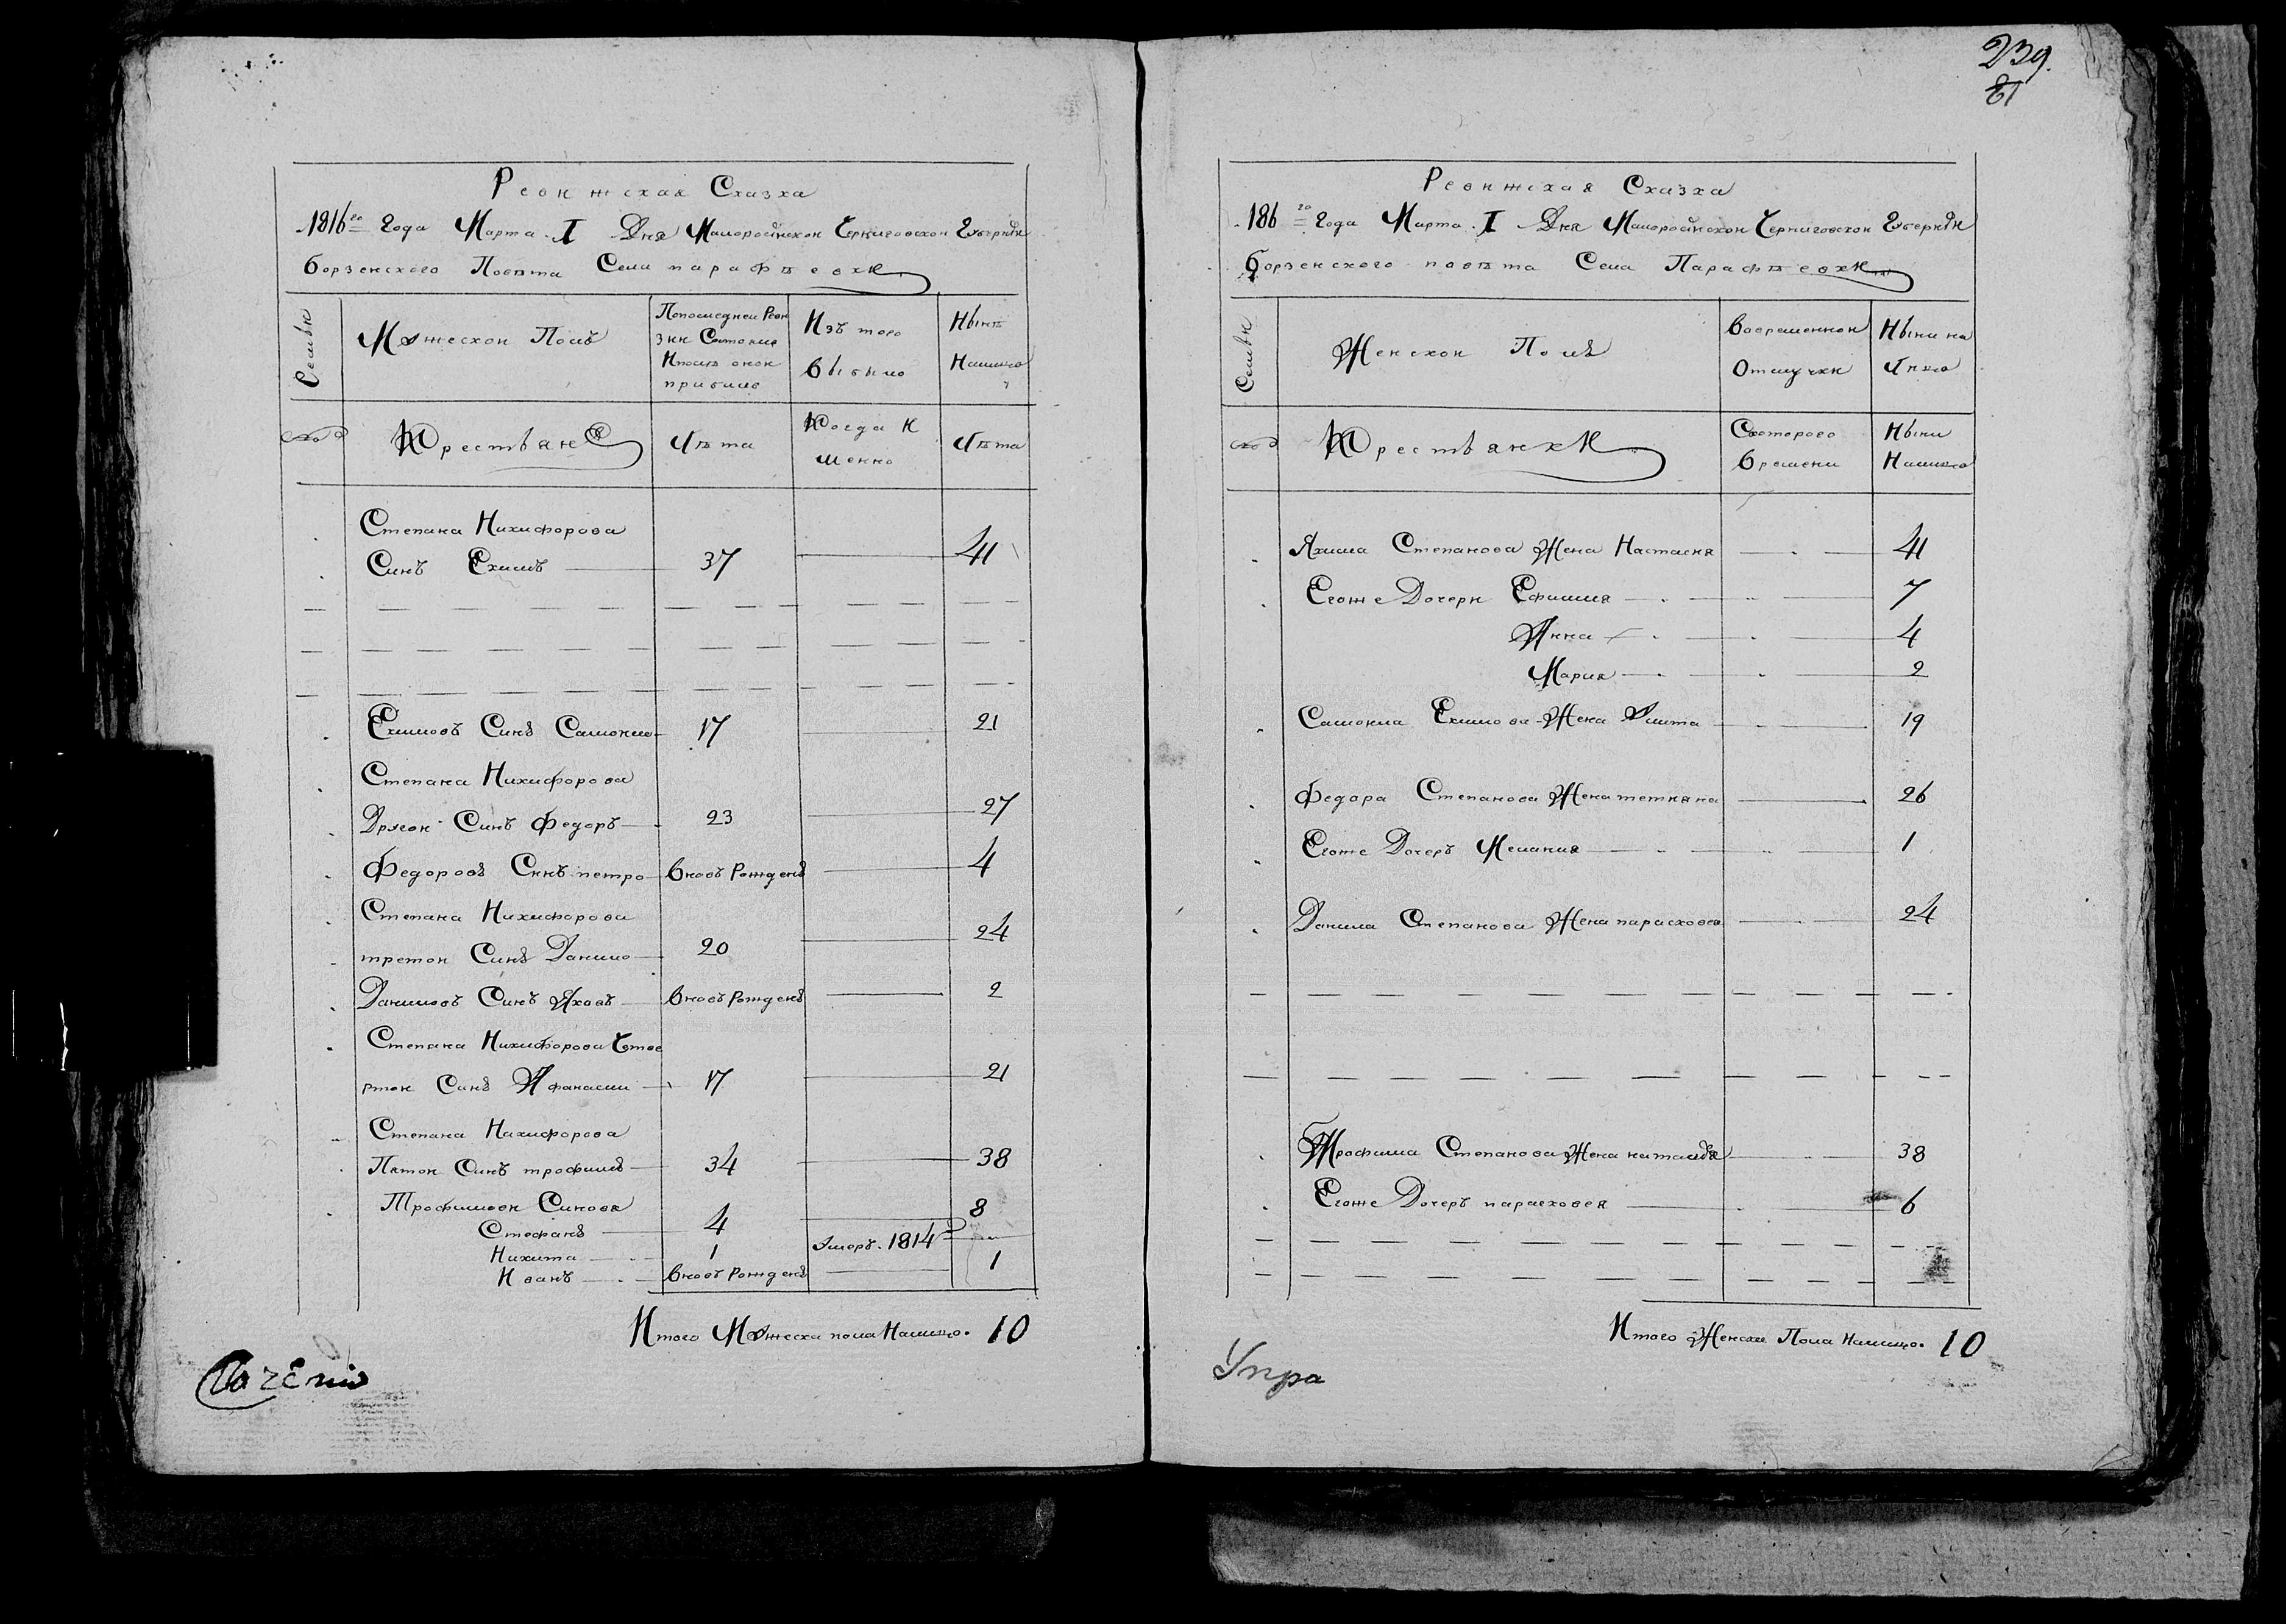 239.
81
Ревижская Сказка
1816го Года Марта I Дня Малоросійской Черниговской Губерніи
борзенского Повѣта Села парафѣевки
Семьи
Мужеской Полъ
Попоследней Реви
зіи Состояло
Ипослѣ оной
прибило
Изъ того
выбыло
Нынѣ
Налицо
Крестьяне
Лѣта
Когда И
менно
Лѣта
Степана Никифорова
Синъ Екимъ 37 41
Екимовъ Синъ Самойло 17 21
Степана Никифорова
Другой Синъ Федоръ 23 27
Федоровъ Синъ петро вновъ Рожденъ 4
Степана Никифорова
третой Синъ Данило 20 24
Даниловъ Синъ Яковъ вновъ Рожденъ 2
Степана Никифорова Четве
ртой Синъ Афанасий 17 21
Степана Никифорова
Пятой Синъ трофимъ 34 38
Трофимови Синове
Стефанъ 4 8
Никита 1 Умеръ. 1814
Иванъ вновъ Рожденъ 1
Итого Мужеска пола Налицо. 10
Ревижская Сказка
186го Года Марта I Дня Малоросійской Черниговской Губерніи
борзенского повѣта Села Парафѣевки
Семьи
Женской Полъ
Вовременной
Отлучки
Ныни на
Лицо
Крестьянки
Скоторого
Времени
Ныни
Налицо
Якима Степанова Жена Настасия 41
Егоже Дочери Ефимия 7
Анна 4
Мария 2
Самойла Екимова Жена Улита 19
Федора Степанова Жена тетяна 26
Егоже Дочеръ Мелания 1
Данила Степанова Жена парасковея 24
Трофима Степанова Жена наталья 38
Егоже Дочеръ парасковея 6
Итого Женска Пола Налицо. 10
Упра